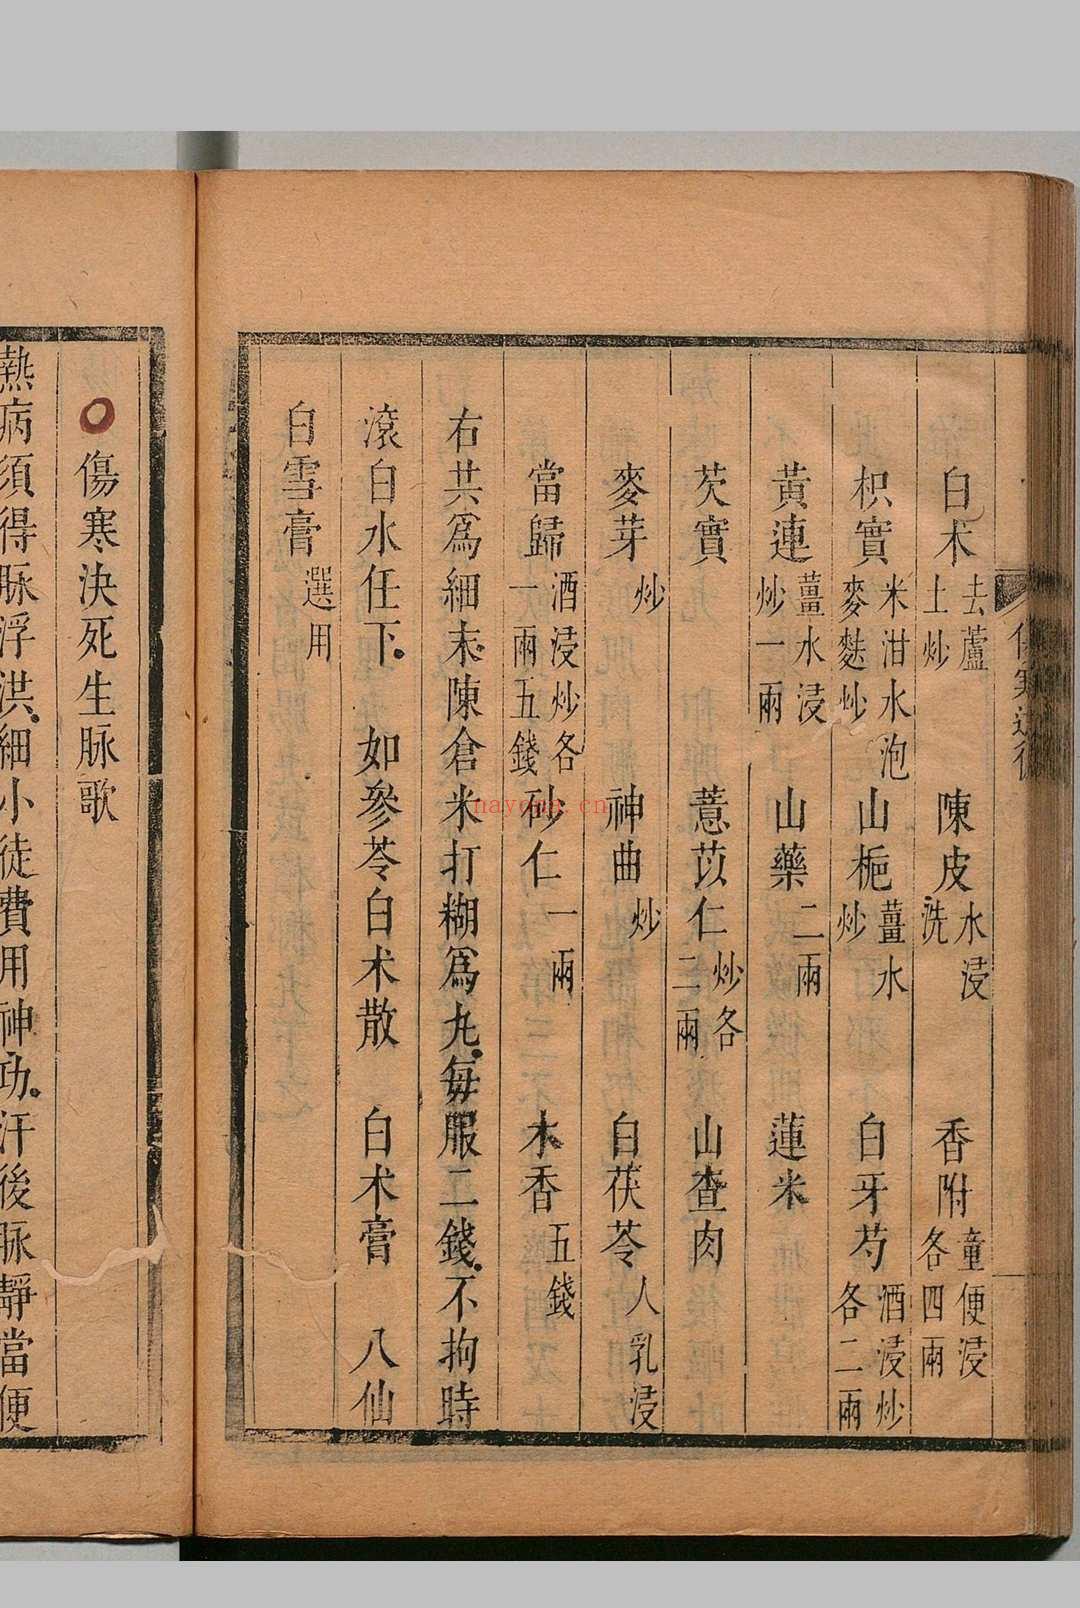 白术去蘆土炒 陳皮水浸洗 香附童便浸各四兩
枳實米泔水泡麥麩炒 山梔薑水炒 白牙芍酒浸炒各二兩
黃連薑水浸炒一兩 山藥二兩 蓮米
芡實 薏苡仁炒各二兩 山查肉
麥芽炒 神曲炒 白茯苓人乳浸
當歸酒浸炒各一兩五錢 砂仁一兩 木香五錢
右共爲細末陳倉米打糊爲丸每服二錢不拘時
滾白水任下 如參苓白术散 白术膏 八仙
白雪膏選用
○傷寒決死生脉歌
熱病須得脉浮洪細小徒費用神功汗後脉靜當便
nayona.cn